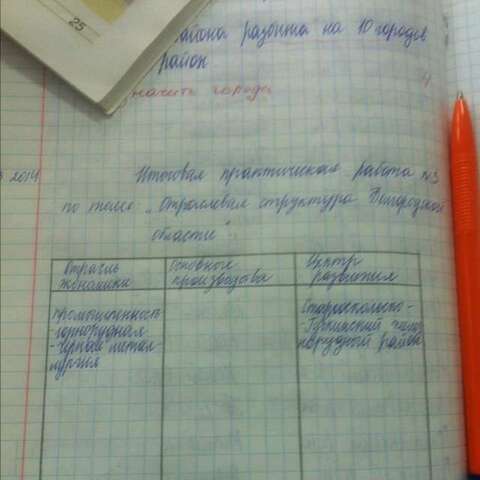 25
района разбита на 10 городов
район
значить города
4
2014 Итоговая практическая работа №3
по теме: „Отраслевая структура Белгородской
области"
Отрасль
экономики
Основные
производства
Центр
развития
Промышленность
-горнорудная
-чёрная метал-
лургия
Старооскольско-
-Губкинский
норудный район